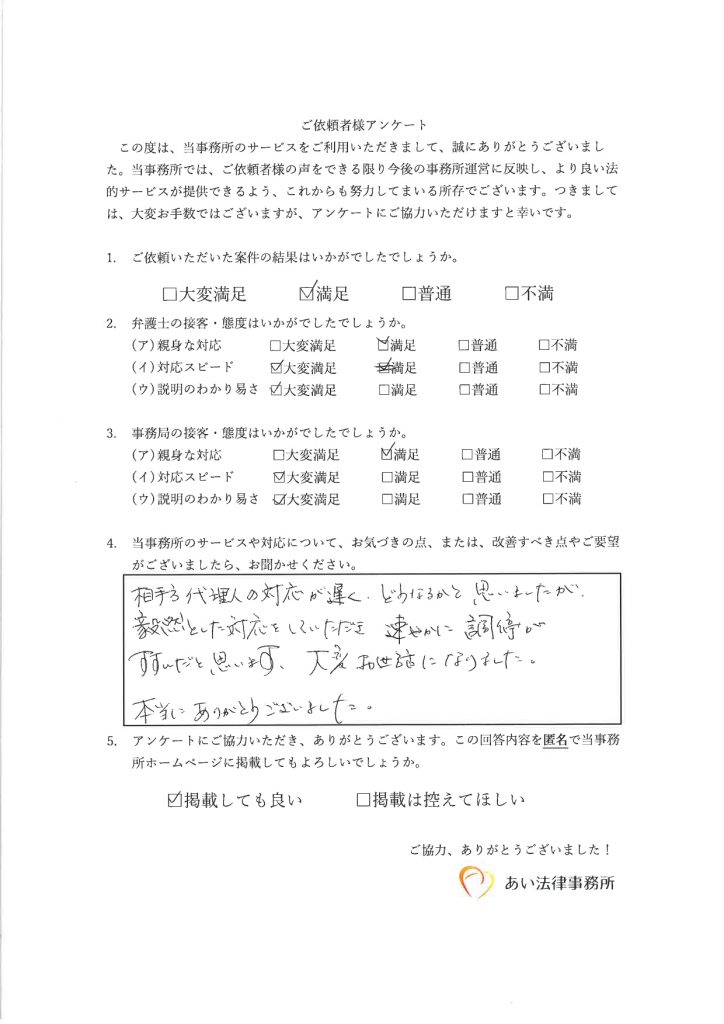 ご依頼者様アンケート
この度は、当事務所のサービスをご利用いただきまして、誠にありがとうございまし
た。当事務所では、ご依頼者様の声をできる限り今後の事務所運営に反映し、より良い法
的サービスが提供できるよう、これからも努力してまいる所存でございます。つきまして
は、大変お手数ではございますが、アンケートにご協力いただけますと幸いです。
1. ご依頼いただいた案件の結果はいかがでしたでしょうか。
□大変満足 ☑満足 □普通 □不満
2. 弁護士の接客・態度はいかがでしたでしょうか。
(ア)親身な対応 □大変満足 ☑満足 □普通 □不満
(イ)対応スピード ☑大変満足 ☑満足 □普通 □不満
(ウ)説明のわかり易さ ☑大変満足 □満足 □普通 □不満
3. 事務局の接客・態度はいかがでしたでしょうか。
(ア)親身な対応 □大変満足 ☑満足 □普通 □不満
(イ)対応スピード ☑大変満足 □満足 □普通 □不満
(ウ)説明のわかり易さ ☑大変満足 □満足 □普通 □不満
4. 当事務所のサービスや対応について、お気づきの点、または、改善すべき点やご要望
がございましたら、お聞かせください。
相手方代理人の対応が遅く、どうなるかと思いましたが、
毅然とした対応をしていただき 速やかに調停が
すすんだと思います、大変お世話になりました。
本当にありがとうございました。
5. アンケートにご協力いただき、ありがとうございます。この回答内容を匿名で当事務
所ホームページに掲載してもよろしいでしょうか。
☑掲載しても良い □掲載は控えてほしい
ご協力、ありがとうございました！
あい法律事務所